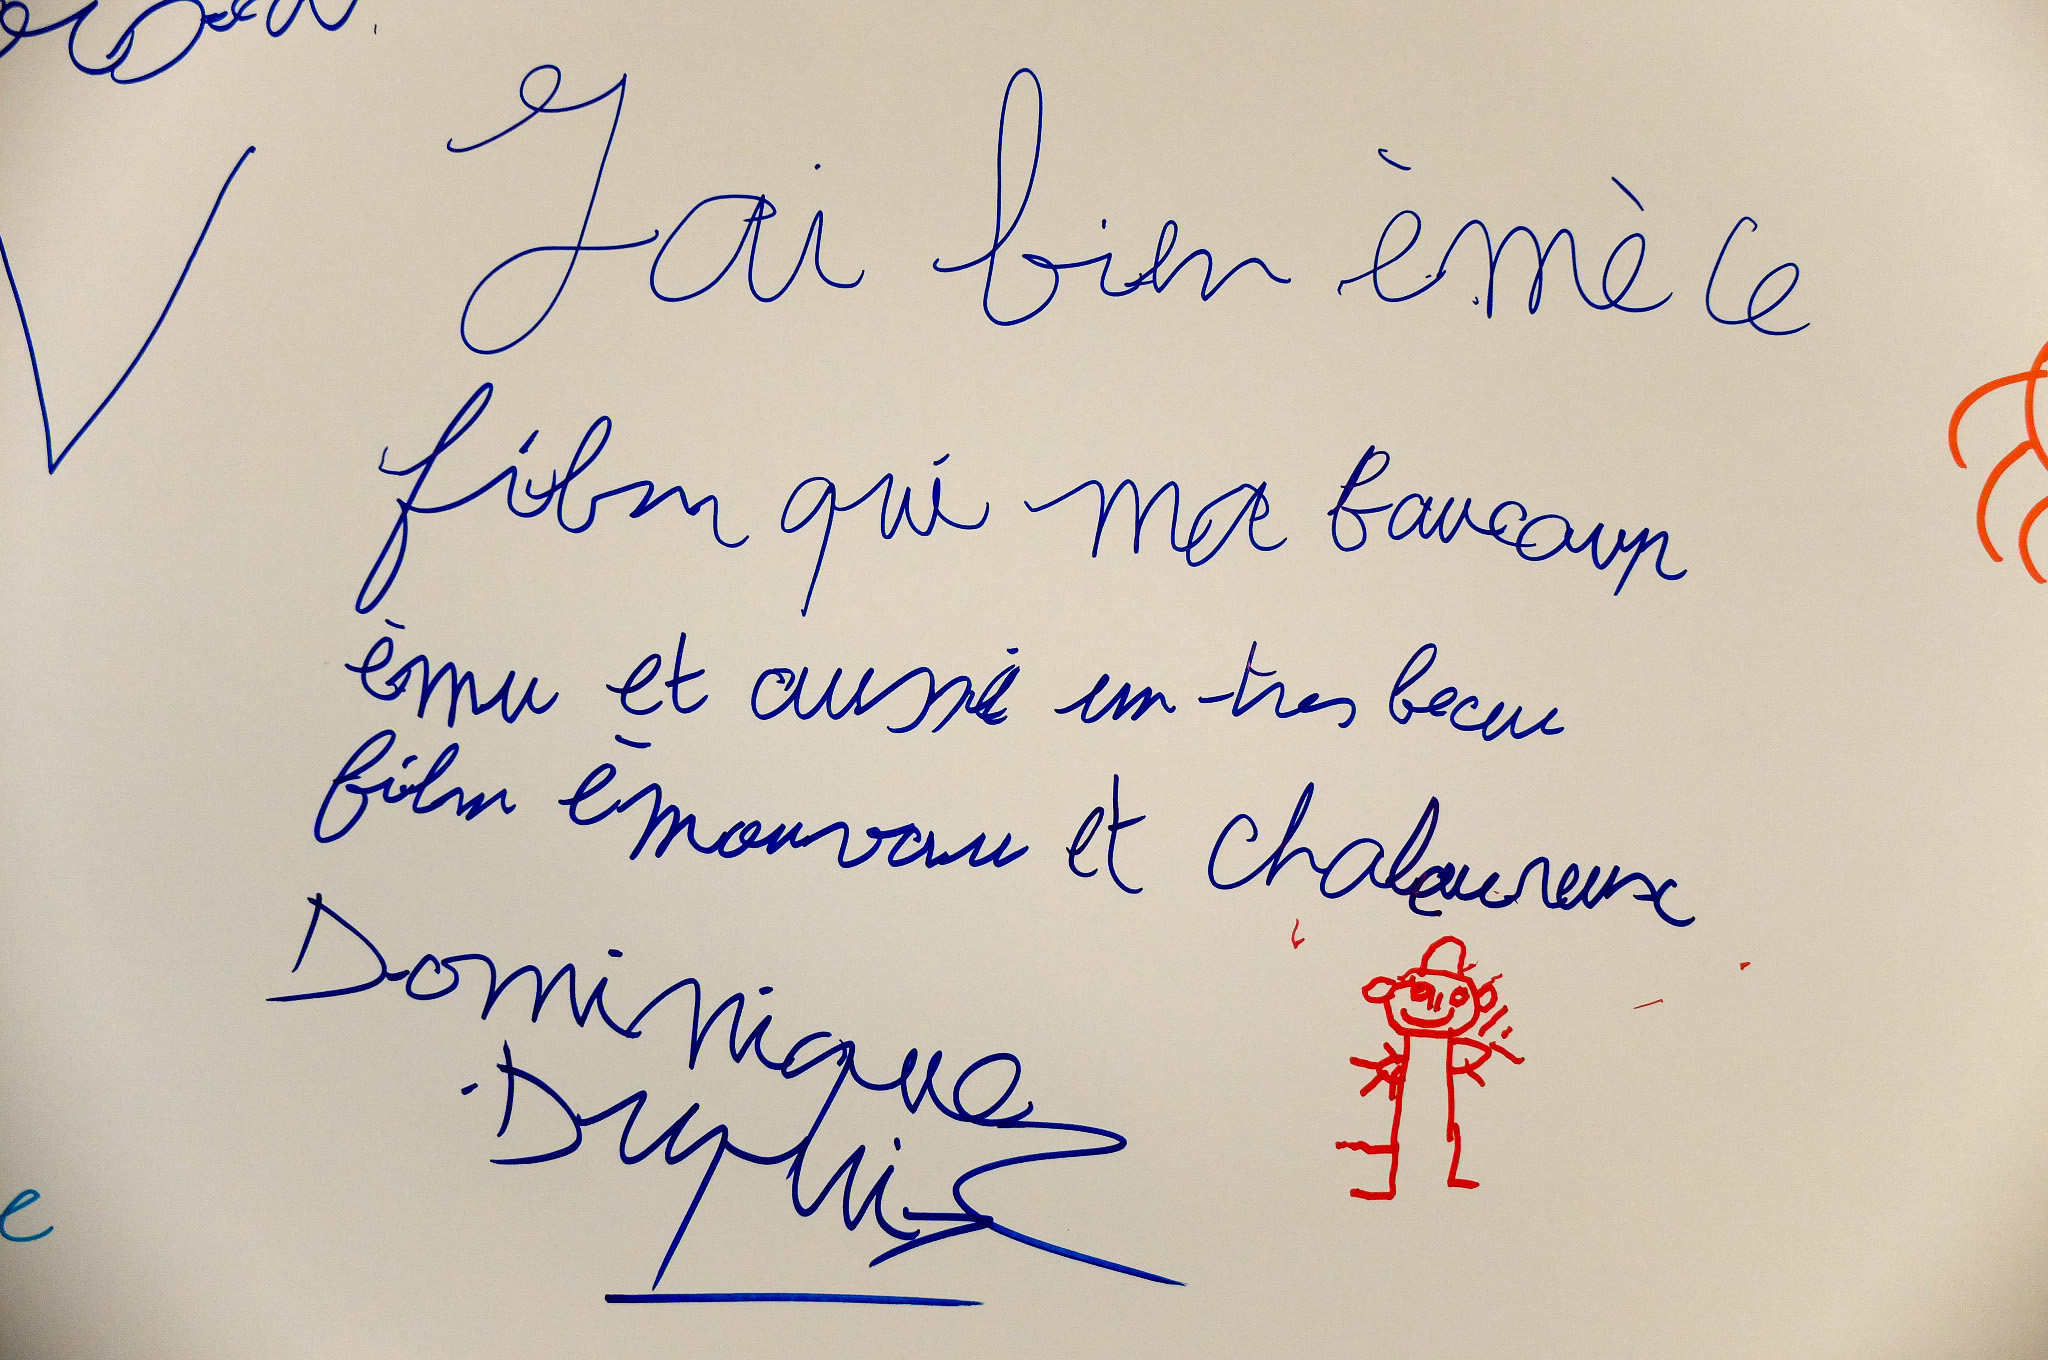 J'ai bien èmè ce
film qui ma baucoup
èmu et aussi un tres beau
film èmouvau et chaleureuse
Dominique
Dupuis
e